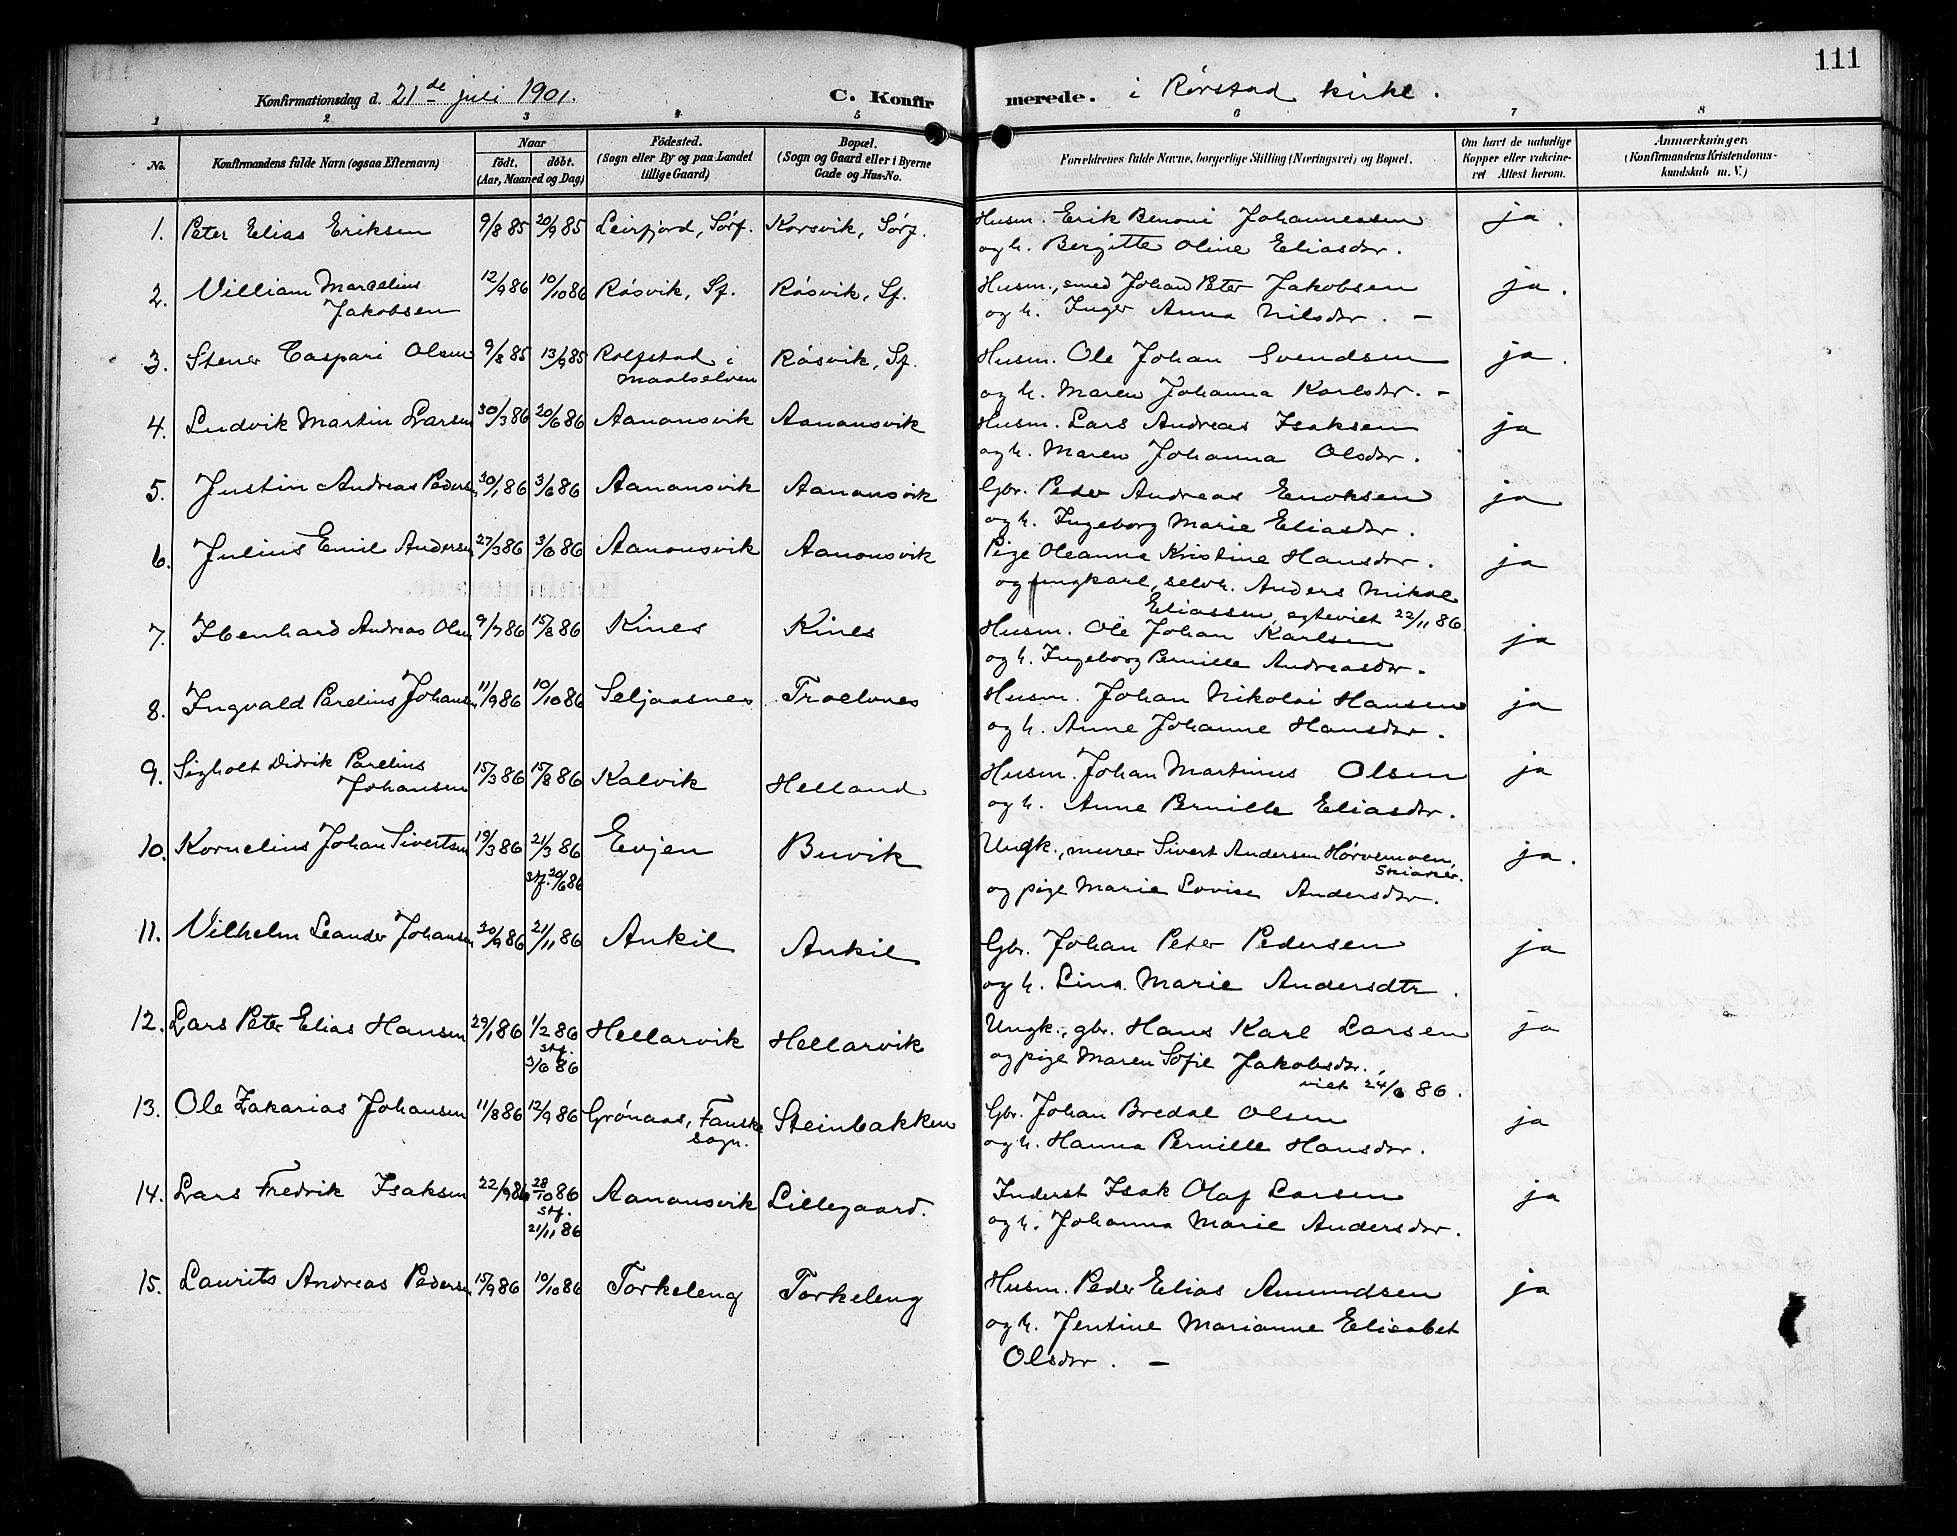 111
Konfirmationsdag d. 21de juli 1901. C. Konfirmerede. i Rørstad kirke.
1 2 3 4 5 6 7 8
No. Konfirmandens fulde Navn (ogsaa Efternavn) Naar født. døbt. (Aar, Maaned og Dag) Fødested. (Sogn eller By og paa Landet tillige Gaard) Bopæl. (Sogn og Gaard eller i Byerne Gade og Hus-No. Forældrenes fulde Navne, borgerlige Stilling (Næringsvei) og Bopæl. Om havt de naturlige Kopper eller vakcineret Attest herom. Anmærkninger. (Konfirmandens Kristendomskundskab m. V.)
1. Peter Elias Eriksen 9/8 85 20/9 85 Leirfjord, Sørf. Korsvik, Sørf. Husm. Erik Benoni Johannessen ja.
og h. Bergitte Oline Eliasdtr.
2. Villiam Marcelius 12/9 86 10/10 86 Røsvik, Sf. Røsvik, Sf. Husm., smed Johan Peter Jakobsen ja.
Jakobsen og h. Inger Anna Nilsdtr. –
3. Stener Caspari Olsen 9/8 85 13/9 85 Rolfstad i Røsvik, Sf. Husm. Ole Johan Svendsen ja.
Maalselven og h. Maren Johanna Karlsdtr. –
4. Ludvik Martin Larsen 30/3 86 20/6 86 Aanonsvik Aanonsvik Husm. Lars Andreas Isaksen ja
og h. Maren Johanna Olsdtr.
5. Justin Andreas Peders. 30/1 86 3/6 86 Aanonsvik Aanonsvik Gbr. Peder Andreas Enoksen ja
og h. Ingeborg Marie Eliasdtr.
6. Julius Emil Andersen 27/3 86 3/6 86 Aanonsvik Aanonsvik Pige Oleanna Kristine Hansdtr. ja
og ungkarl, selvh. Anders Mikal
Eliassen, egteviet 22/11 86.
7. Ibenhard Andreas Olsen 9/7 86 15/8 86 Kines Kines Husm. Ole Johan Karlsen ja
og h. Ingeborg Pernille Andreasdtr.
8. Ingvald Parelius Johansen 11/9 86 10/10 86 Seljaasnes Traelvnes Husm. Johan Nikolai Hansen ja
og h. Anne Johanne Hansdtr.
9. Sigholt Didrik Parelius 15/3 86 15/8 86 Kalvik Helland Husm. Johan Martinus Olsen ja
Johansen og h. Anne Pernille Eliasdtr.
10. Kornelius Johan Sivertsen 19/3 86 21/3 86 Evjen Buvik Ungk., murer Sivert Andersen Hørvemoen, ja.
stf. 20/6 86 Skianker.
og pige Marie Lovise Andersdtr.
11. Vilhelm Leander Johansen 20/9 86 21/11 86 Ankil Ankil Gbr. Johan Peter Pedersen ja
og h. Lina Marie Andersdtr.
12. Lars Peter Elias Hansen 29/1 86 1/2 86 Hellarvik Hellarvik Ungk., gbr. Hans Karl Larsen ja
stf. og pige Maren Sofie Jakobsdtr.,
3/6 86 viet 24/6 86.
13. Ole Zakarias Johansen 11/8 86 12/9 86 Grønaas, Fauske Steinbakken Gbr. Johan Bredal Olsen ja
sogn. og h. Hanna Pernille Hansdtr.
14. Lars Fredrik Isaksen 22/9 86 28/10 86 Aanonsvik Lillegaard. Inderst Isak Olaf Larsen ja
stf. og h. Johanna Marie Andersdtr.
21/11 86
15. Laurits Andreas Pedersen 15/9 86 10/10 86 Torkeleng Torkeleng Husm. Peder Elias Amundsen ja
og h. Jentine Marianne Elisabet
Olsdtr. –